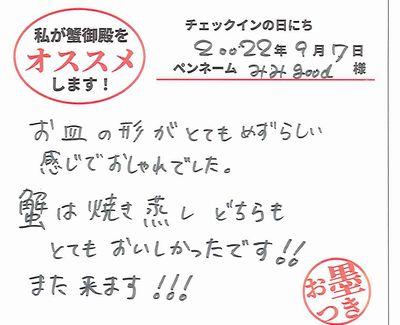 私が蟹御殿を
オススメ
します！
チェックインの日にち
20022年9月7日
ペンネーム みみgood 様
お皿の形がとてもめずらしい
感じでおしゃれでした。
蟹は焼き蒸しどちらも
とてもおいしかったです!!
また来ます!!!
お墨つき